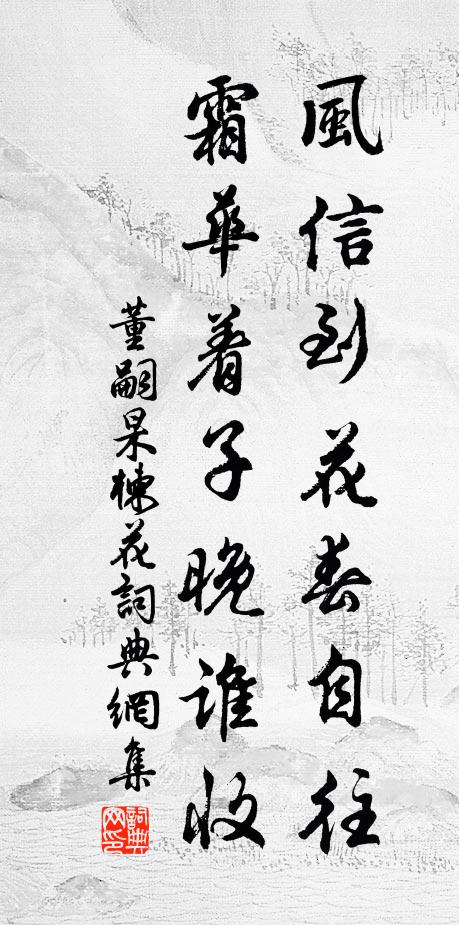 風信到花春自往
霜華着子晚誰收
董嗣杲楝花詞典網集
詞典網印